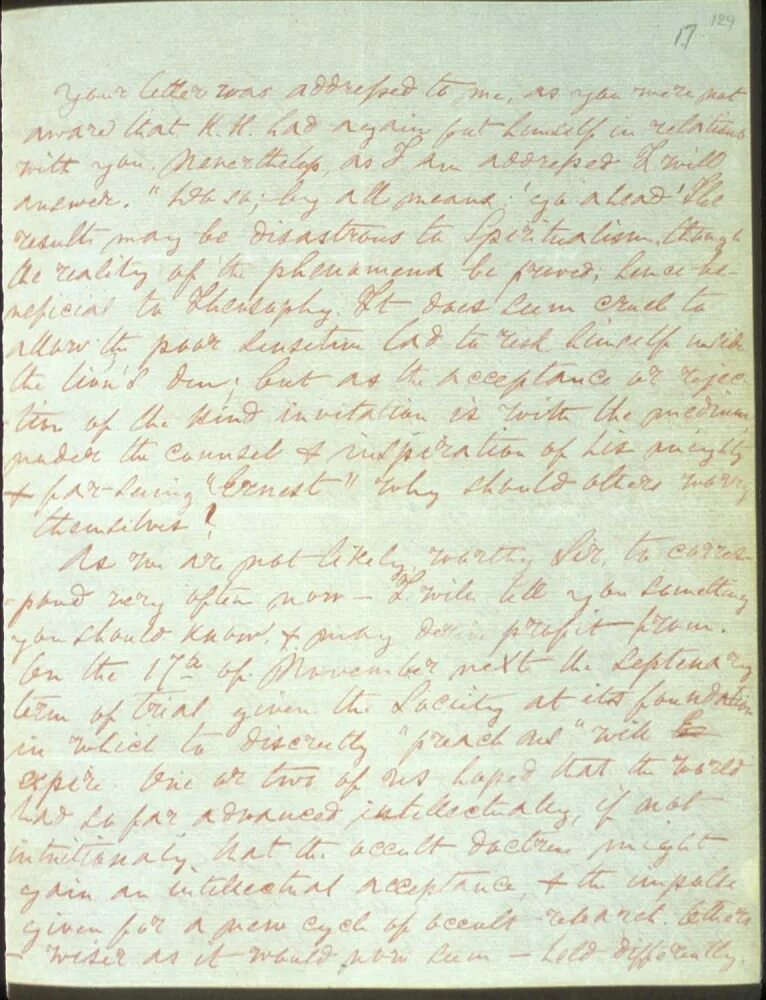 17 129
Your letter was addressed to me, as you were not
aware that K.H. had again put himself in relations
with you. Nevertheless, as I am addressed I will
answer. "Do so; by all means; go ahead." The
results may be disastrous to Spiritualism, though
the reality of the phenomena be proved; hence be-
neficial to Theosophy. It does seem cruel to
allow the poor sensitive lad to risk himself inside
the lion's den; but as the acceptance or rejec-
-tion of the kind invitation is with the medium
under the counsel & inspiration of his mighty
& far-seeing "Ernest" why should others worry
themselves!
As we are not likely, worthy Sir, to corres-
-pond very often now – I will tell you something
you should know, & may derive profit from.
On the 17th of November next the Septenary
term of trial given the Society at its foundation
in which to discreetly "preach us" will
expire. One or two of us hoped that the world
had so far advanced intellectually, if not
intuitionally, that the occult doctrine might
gain an intellectual acceptance, & the impulse
given for a new cycle of occult research. Others
– wiser as it would now seem – held differently,